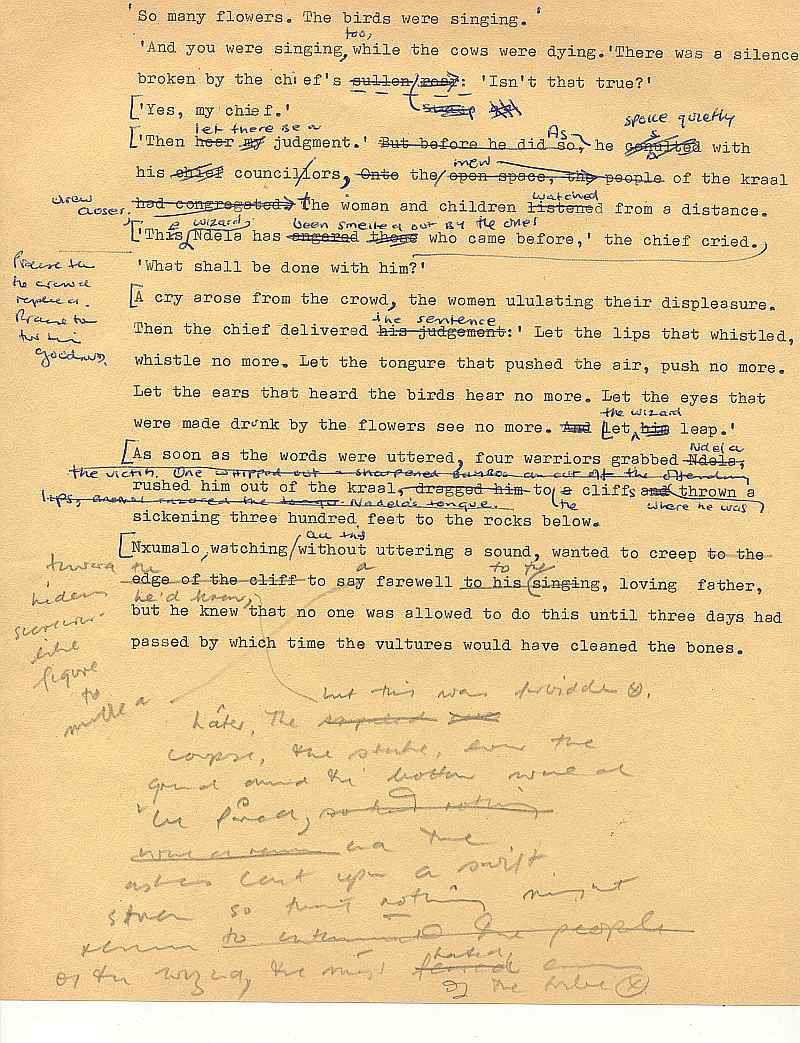 'So many flowers. The birds were singing.'
too,
'And you were singing, while the cows were dying.' There was a silence
broken by the chief's sullen roar: 'Isn't that true?'
['Yes, my chief.'
let there be a
spoke quietly
['Then hear my judgment.' But before he did so, As he consulted with
men
his chief councillors, Onto the open space, the people of the kraal
drew closer.
watched
had congregated. The woman and children listened from a distance.
a wizard,
been smelled out by the ones
['This Ndela has angered those who came before,' the chief cried.
'What shall be done with him?'
Praise to
the crowd
replied.
Praise to
for his
goodness.
[A cry arose from the crowd, the women ululating their displeasure.
the sentence
Then the chief delivered his judgement:' Let the lips that whistled,
whistle no more. Let the tongure that pushed the air, push no more.
Let the ears that heard the birds hear no more. Let the eyes that
the wizard
were made drunk by the flowers see no more. And Let him leap.'
Ndela
[As soon as the words were uttered, four warriors grabbed Ndela,
the victim. One whipped out a sharpened bamboo an cut off the offending
rushed him out of the kraal, dragged him to a cliffs and thrown a
lips, Ndela's tongue.
the
where he was
sickening three hundred feet to the rocks below.
all this
[Nxumalo, watching without uttering a sound, wanted to creep to the
toward the
a
to the
edge of the cliff to say farewell to his singing, loving father,
hidden
he'd known,
but he knew that no one was allowed to do this until three days had
like
figure
to
passed by which time the vultures would have cleaned the bones.
but this was forbidden.
Later, the
corpse, the stake, even the
ground around the bottom would
be
and the
ashes cast upon a swift
so that nothing might
remain to the people
of the wizard, the most hated feared
of the tribe